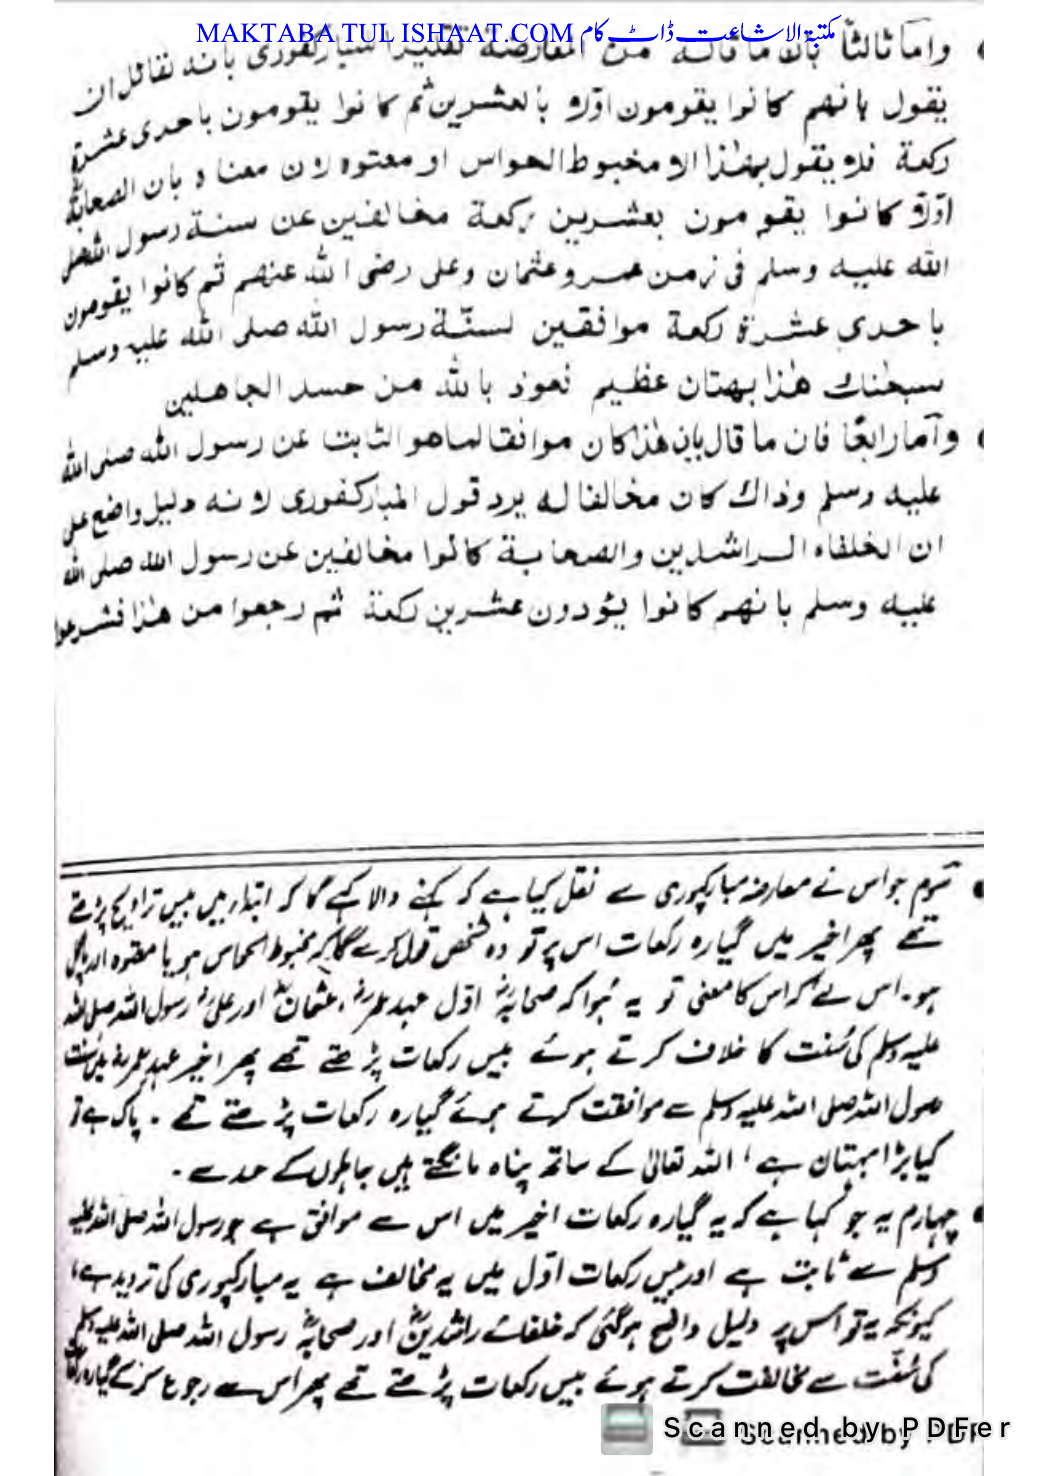 MAKTABA TUL ISHAAT.COM مکتبۃ الاشاعت ڈاٹ کام
واما ثالثا بان ما قاله من المعارضة تقليدا المباركفوری بانه لقائل ان
يقول بانهم كانوا يقومون اولا بالعشرين ثم كانوا يقومون باحدى عشرة
ركعة فلا يقول بهذا الا مخبوط الحواس او معتوه لان معناه بان الصحابة
اولا كانوا يقومون بعشرين ركعة مخالفين عن سنة رسول الله صلى
الله عليه وسلم فى زمن عمر و عثمان وعلى رضى الله عنهم ثم كانوا يقومون
باحدى عشرة ركعة موافقين لسنّة رسول الله صلى الله عليه وسلم
سبحنك هذا بهتان عظيم نعوذ بالله من حسد الجاهلين
وأما رابعًا فان ما قال بان هذا كان موافقا لما هو الثابت عن رسول الله صلى الله
عليه وسلم وذاك كان مخالفا له يرد قول المباركفورى لانه دليل واضح على
ان الخلفاء الراشدين والصحابة كانوا مخالفين عن رسول الله صلى الله
عليه وسلم بانهم كانوا يؤدون عشرين ركعة ثم رجعوا من هذا فشرعوا
سوم جو اس نے معارضہ مبارکپوری سے نقل کیا ہے کہ کہنے والا کہے گا کہ ابتداء میں بیس تراویح پڑھتے
تھے پھر اخیر میں گیارہ رکعات اس پر تو وہ شخص قول کرے گا جو مخبوط الحواس ہو یا معتوہ اور پاگل
ہو۔ اس لئے کہ اس کا معنی تو یہ ہوا کہ صحابہؓ اوّل عہد عمرؓ، عثمانؓ اور علیؓ رسول اللہ صلی اللہ
علیہ وسلم کی سُنت کا خلاف کرتے ہوئے بیس رکعات پڑھتے تھے پھر اخیر عہد عمرؓ میں سنت
رسول اللہ صلی اللہ علیہ وسلم سے موافقت کرتے ہوئے گیارہ رکعات پڑھتے تھے ۔ پاک ہے تو
کیا بڑا بہتان ہے، اللہ تعالیٰ کے ساتھ پناہ مانگتے ہیں جاہلوں کے حسد سے ۔
چہارم یہ جو کہا ہے کہ یہ گیارہ رکعات اخیر میں اس سے موافق ہے جو رسول اللہ صلی اللہ علیہ
وسلم سے ثابت ہے اور بیس رکعات اوّل میں یہ مخالف ہے یہ مبارکپوری کی تردید ہے،
کیونکہ یہ تو اس پر دلیل واضح ہوگئی کہ خلفائے راشدینؓ اور صحابہؓ رسول اللہ صلی اللہ علیہ وسلم
کی سُنّت سے مخالفت کرتے ہوئے بیس رکعات پڑھتے تھے پھر اس سے رجوع کرکے گیارہ رکعات
Scanned by PDFer